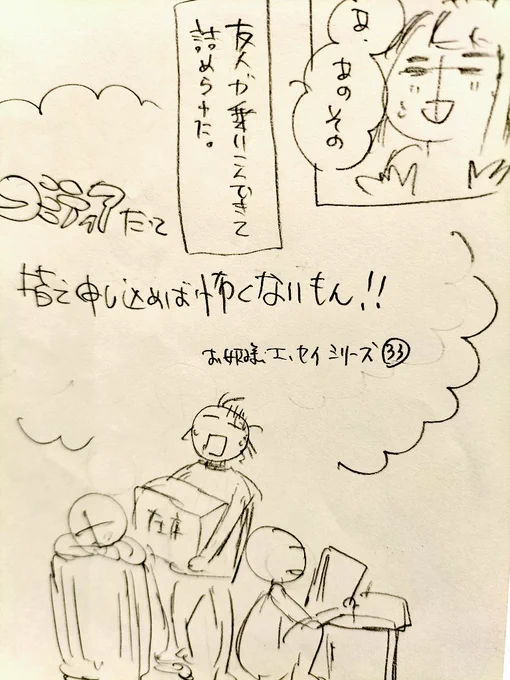 あ、
あのその
友人が乗りこんできて
詰められた。
コミティアだって
皆で申し込めば怖くないもん!!
お姫様エッセイシリーズ㉝
在庫